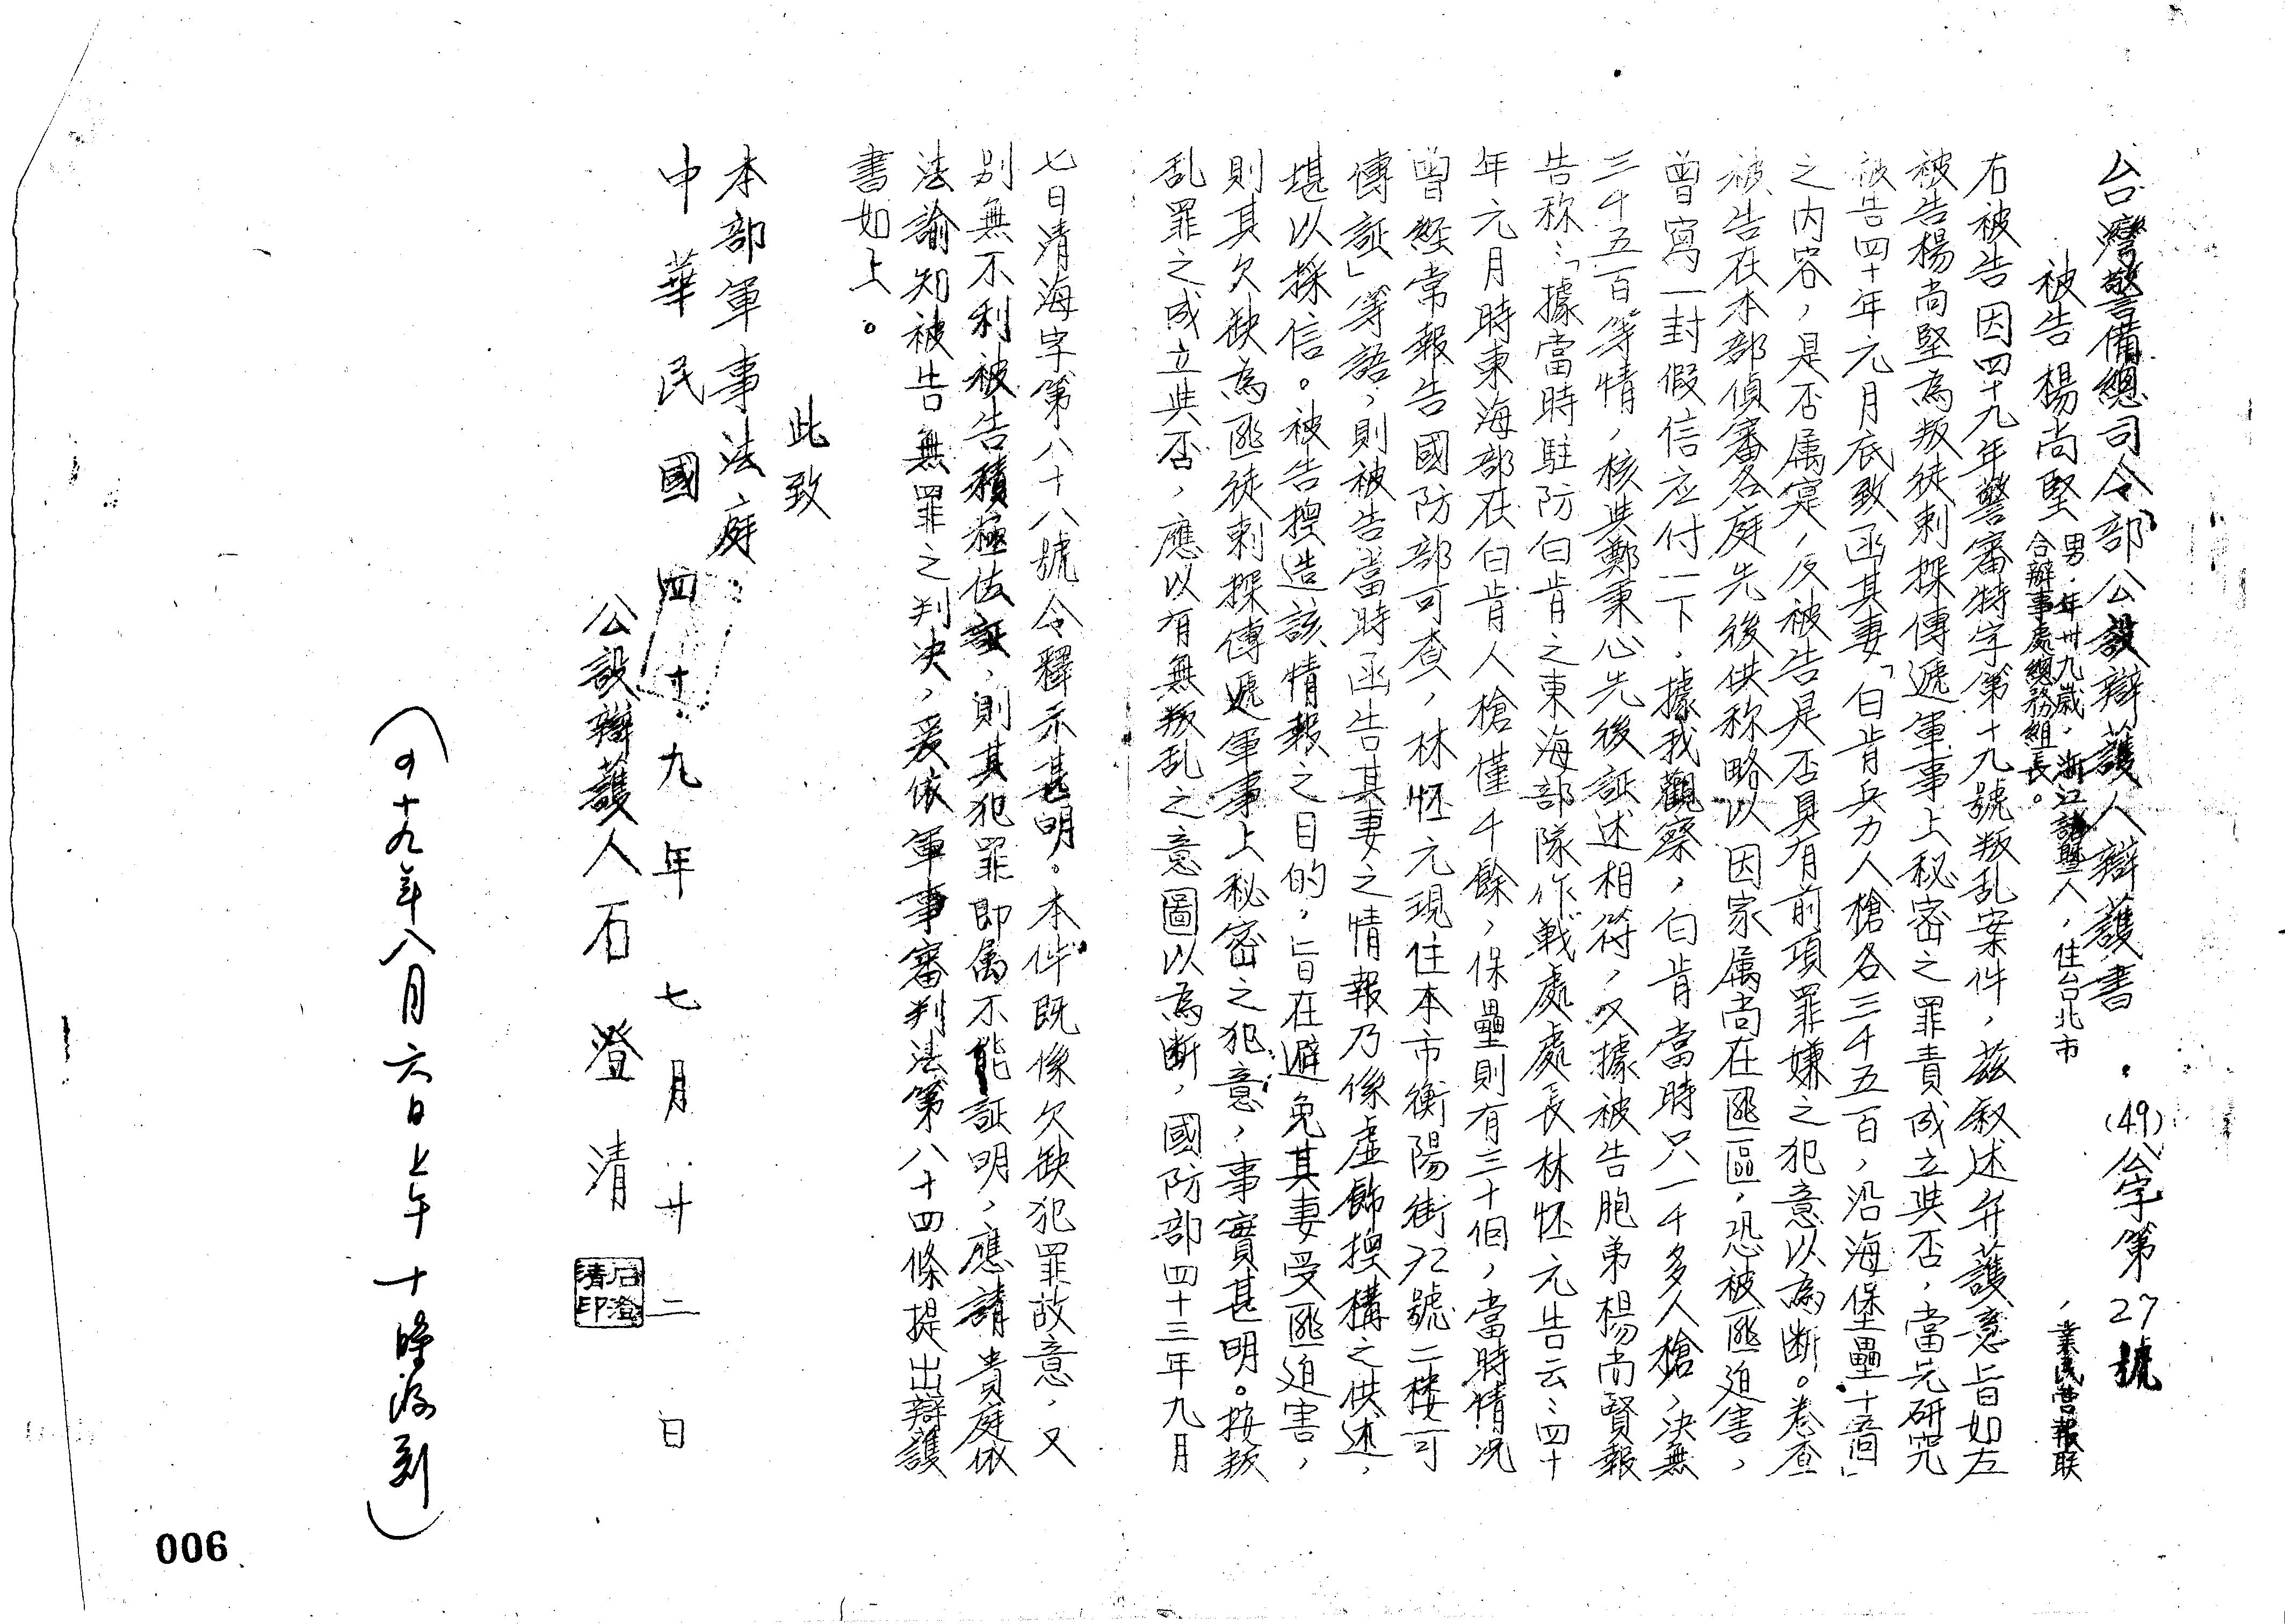 台灣警備總司令部公設辯護人辯護書 (49)公字第27號
被告楊尚堅 男,年卅九歲,浙江諸暨人,住台北市 ,業民營報联
合辦事處總務組長。
右被告因四十九年警審特字第十九號叛乱案件,茲叙述弁護意旨如左
被告楊尚堅為叛徒刺探傳遞軍事上秘密之罪責成立與否,當先研究
被告四十年元月底致函其妻「白肯兵力人槍各三千五百,沿海保壘十五個」
之内容,是否属寔,及被告是否具有前項罪嫌之犯意以為断。卷查
被告在本部偵審各庭先後供称略以因家属尚在匪區,恐被匪迫害,
曾寫一封假信应付一下,據我觀察,白肯當時只一千多人槍,決無
三千五百等情,核與鄭秉心先後証述相符,又據被告胞弟楊尚賢報
告称:「據當時駐防白肯之東海部隊作戰處處長林怀元告云:四十
年元月時東海部在白肯人槍僅千餘,保壘則有三十個,當時情况
曾經常報告國防部可查,林怀元現住本市衡陽街72號二楼可
傳証」等語,則被告當時函告其妻之情報乃係虛飾揑構之供述,
堪以採信。被告揑造該情報之目的,旨在避免其妻受匪迫害,
則其欠缺為匪徒刺探傳遞軍事上秘密之犯意,事實甚明。按叛
乱罪之成立與否,應以有無叛乱之意圖以為断,國防部四十三年九月
七日清海字第八十八號令釋示甚明。本件既係欠缺犯罪故意,又
别無不利被告積極佐証,則其犯罪即属不能証明,應請貴庭依
法諭知被告無罪之判决,爰依軍事審判法第八十四條提出辯護
書如上。
此致
本部軍事法庭
中華民國四十九年七月廿二日
公設辯護人石澄清
石澄清印
(四十九年八月六日上午十時收到)
006